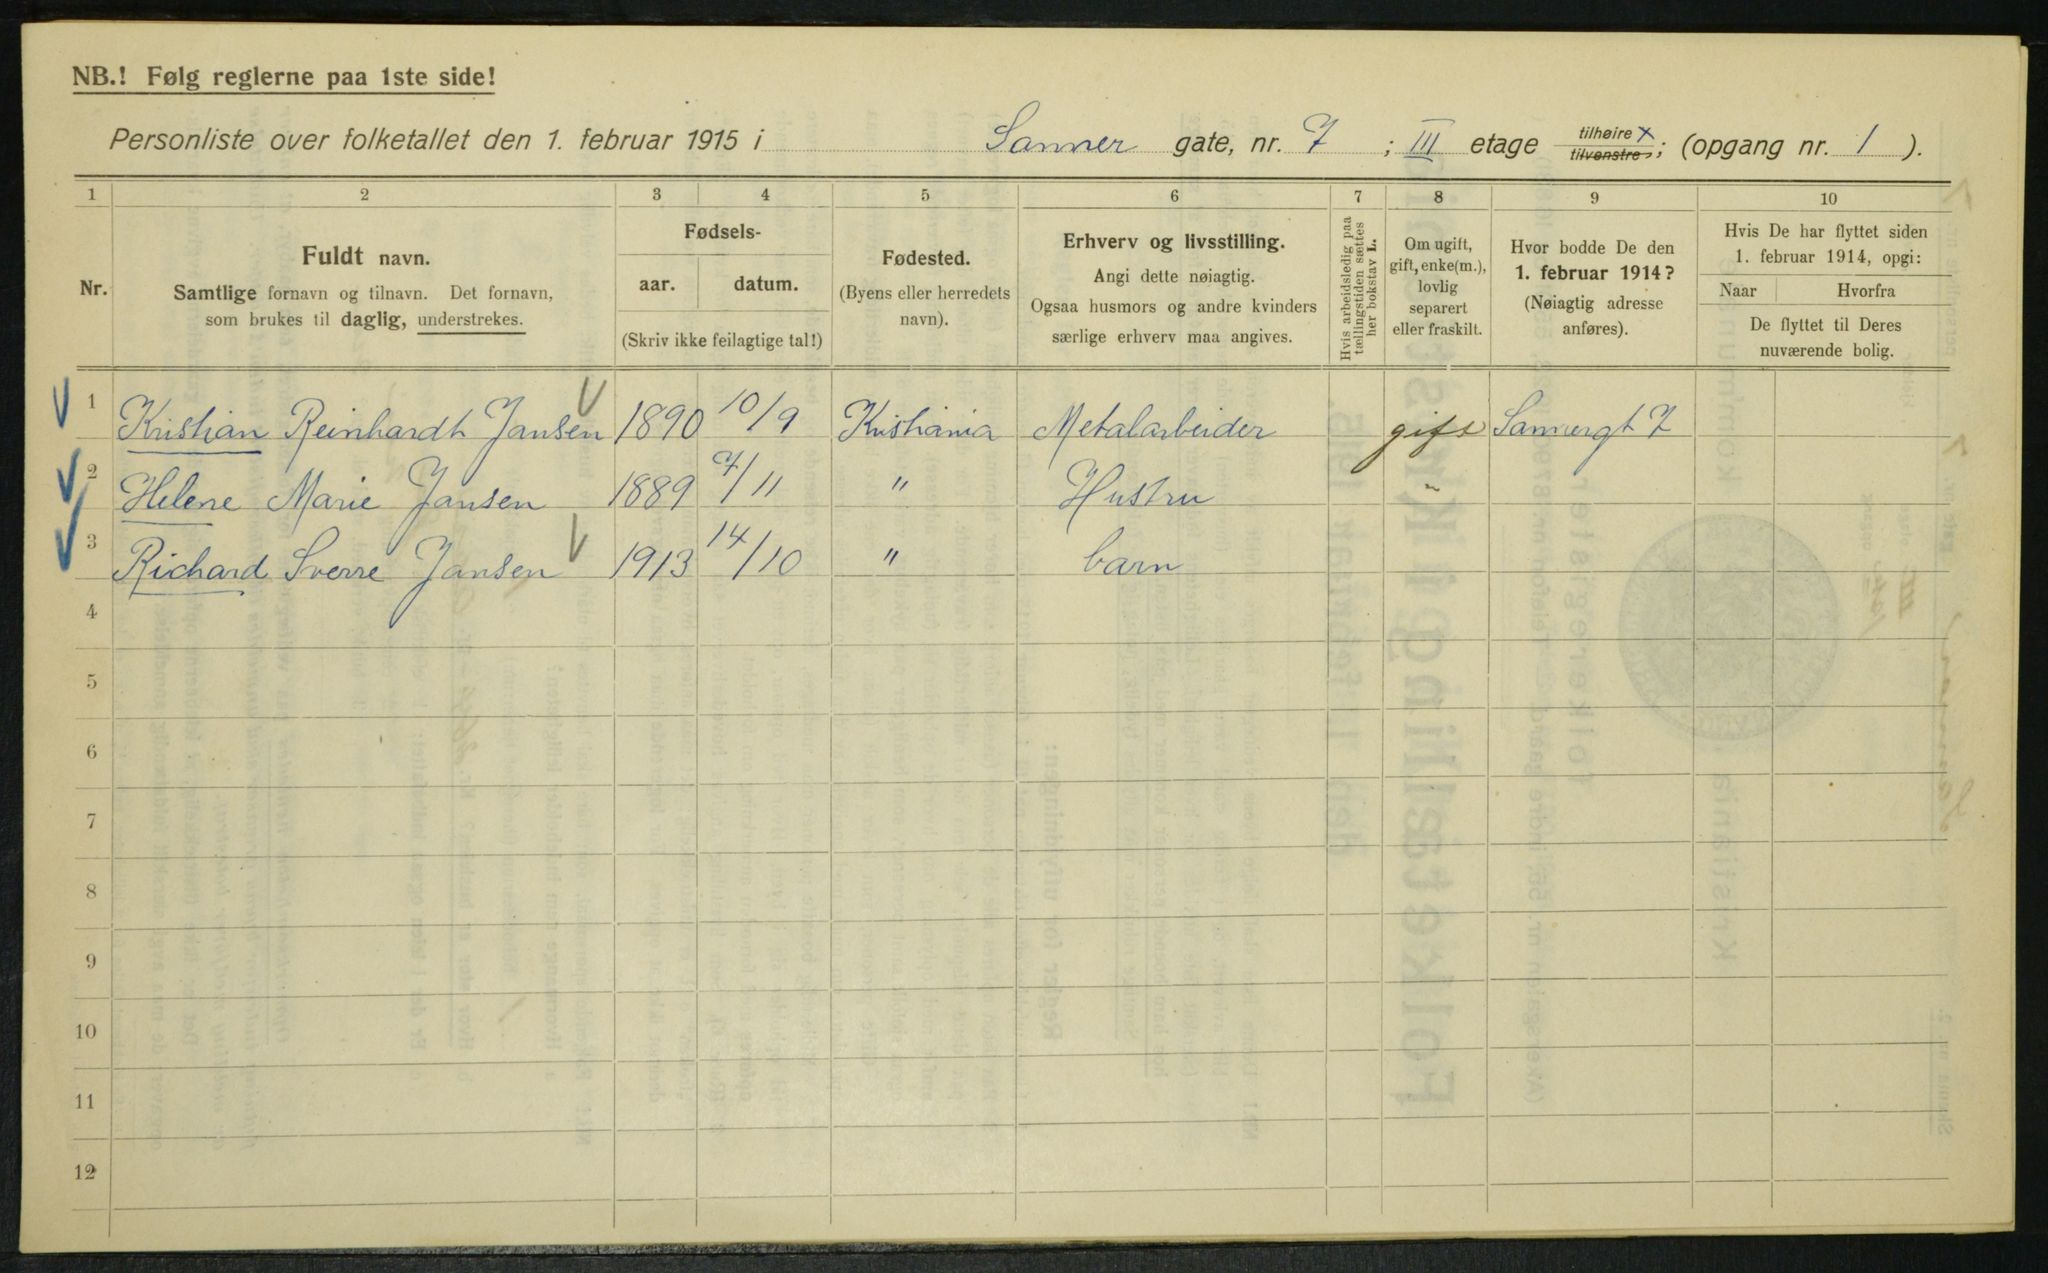 NB.! Følg reglerne paa 1ste side!
Personliste over folketallet den 1. februar 1915 i Sanner gate, nr. 7 ; III etage tilhøire x / tilvenstre ; (opgang nr. 1 ).
1 2 3 4 5 6 7 8 9 10
Nr.
Fuldt navn.
Samtlige fornavn og tilnavn. Det fornavn,
som brukes til daglig, understrekes.
Fødsels-
aar. datum.
(Skriv ikke feilagtige tal!)
Fødested.
(Byens eller herredets
navn).
Erhverv og livsstilling.
Angi dette nøiagtig.
Ogsaa husmors og andre kvinders
særlige erhverv maa angives.
Hvis arbeidsledig paa
tællingstiden sættes
her bokstav L.
Om ugift,
gift, enke(m.),
lovlig
separert
eller fraskilt.
Hvor bodde De den
1. februar 1914?
(Nøiagtig adresse
anføres).
Hvis De har flyttet siden
1. februar 1914, opgi:
Naar Hvorfra
De flyttet til Deres
nuværende bolig.
1 Kristian Reinhardt Jansen 1890 10/9 Kristiania Metalarbeider gift Sannergt 7
2 Helene Marie Jansen 1889 7/11 " Hustru "
3 Richard Sverre Jansen 1913 14/10 " barn
4
5
6
7
8
9
10
11
12